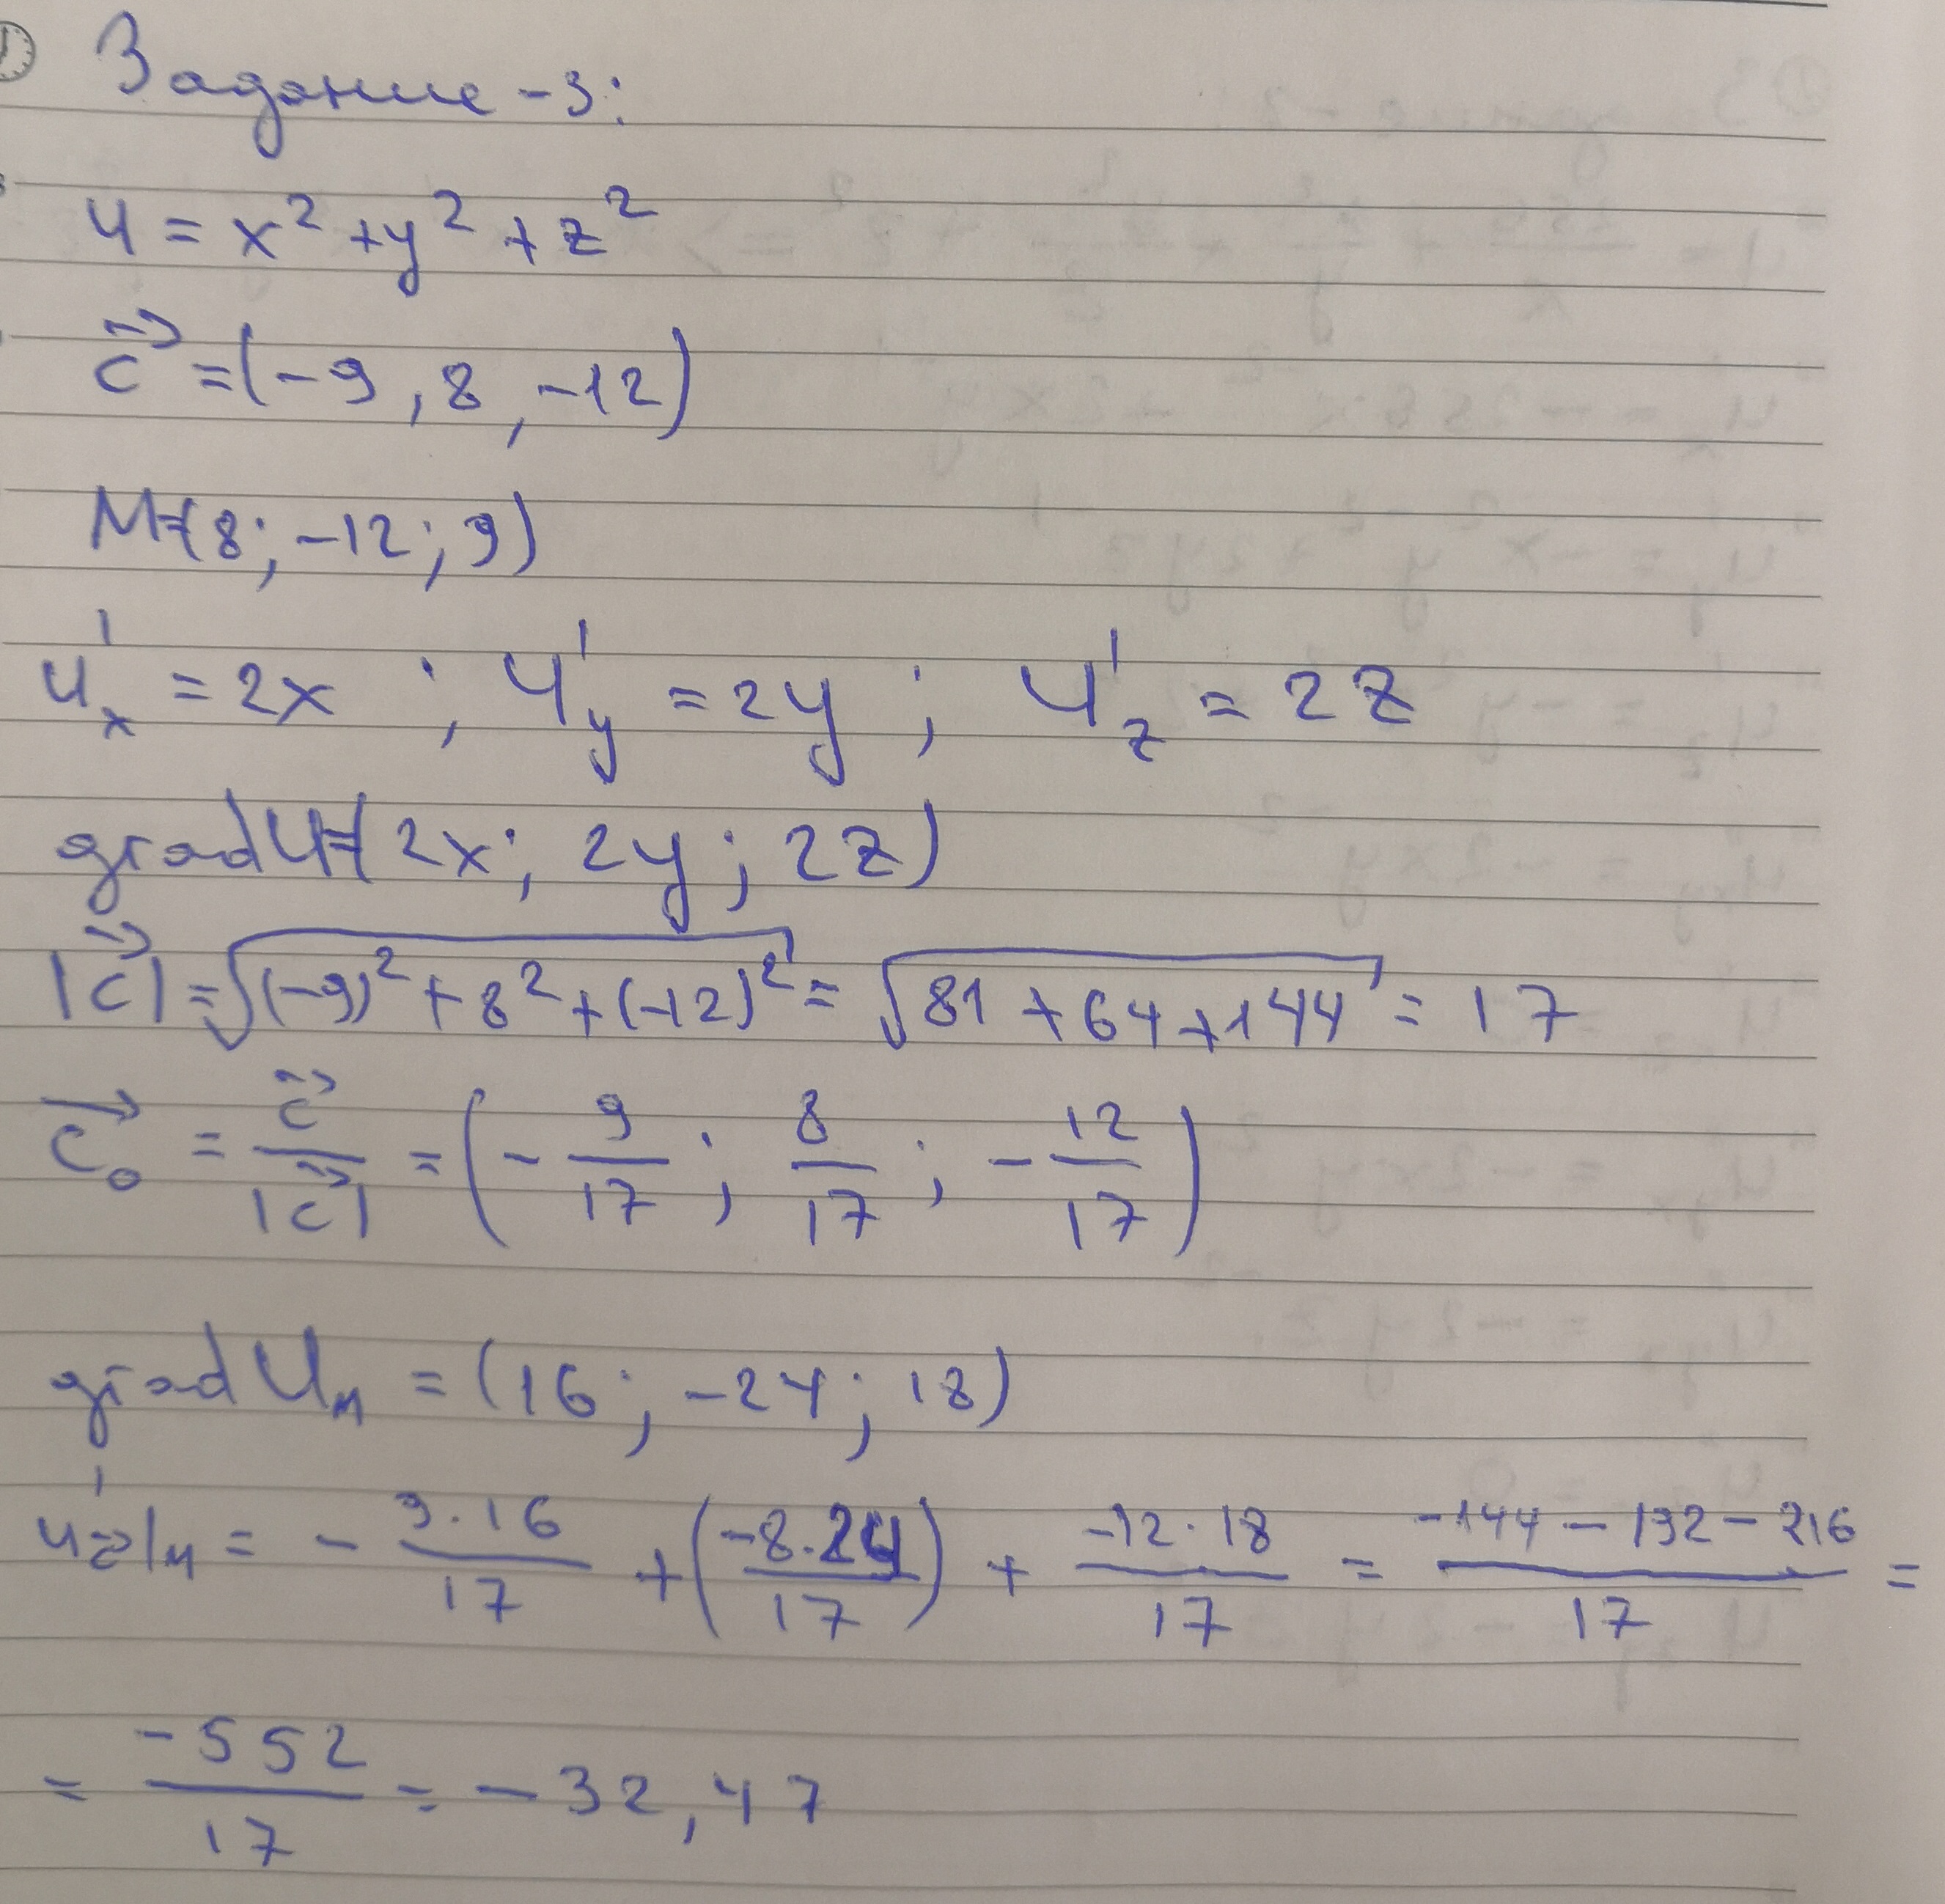 Задание -3:
u = x² + y² + z²
c⃗ = (-9, 8, -12)
M=(8; -12; 9)
u'ₓ = 2x ; u'_y = 2y ; u'_z = 2z
grad u=(2x; 2y; 2z)
|c⃗| = √((-9)² + 8² + (-12)²) = √(81 + 64 + 144) = 17
c⃗₀ = c⃗/|c⃗| = (-9/17; 8/17; -12/17)
grad u_M = (16; -24; 18)
u'_c⃗|_M = - 9·16/17 + (-8·24/17) + -12·18/17 = (-144 - 192 - 216)/17 =
= -552/17 = -32,47